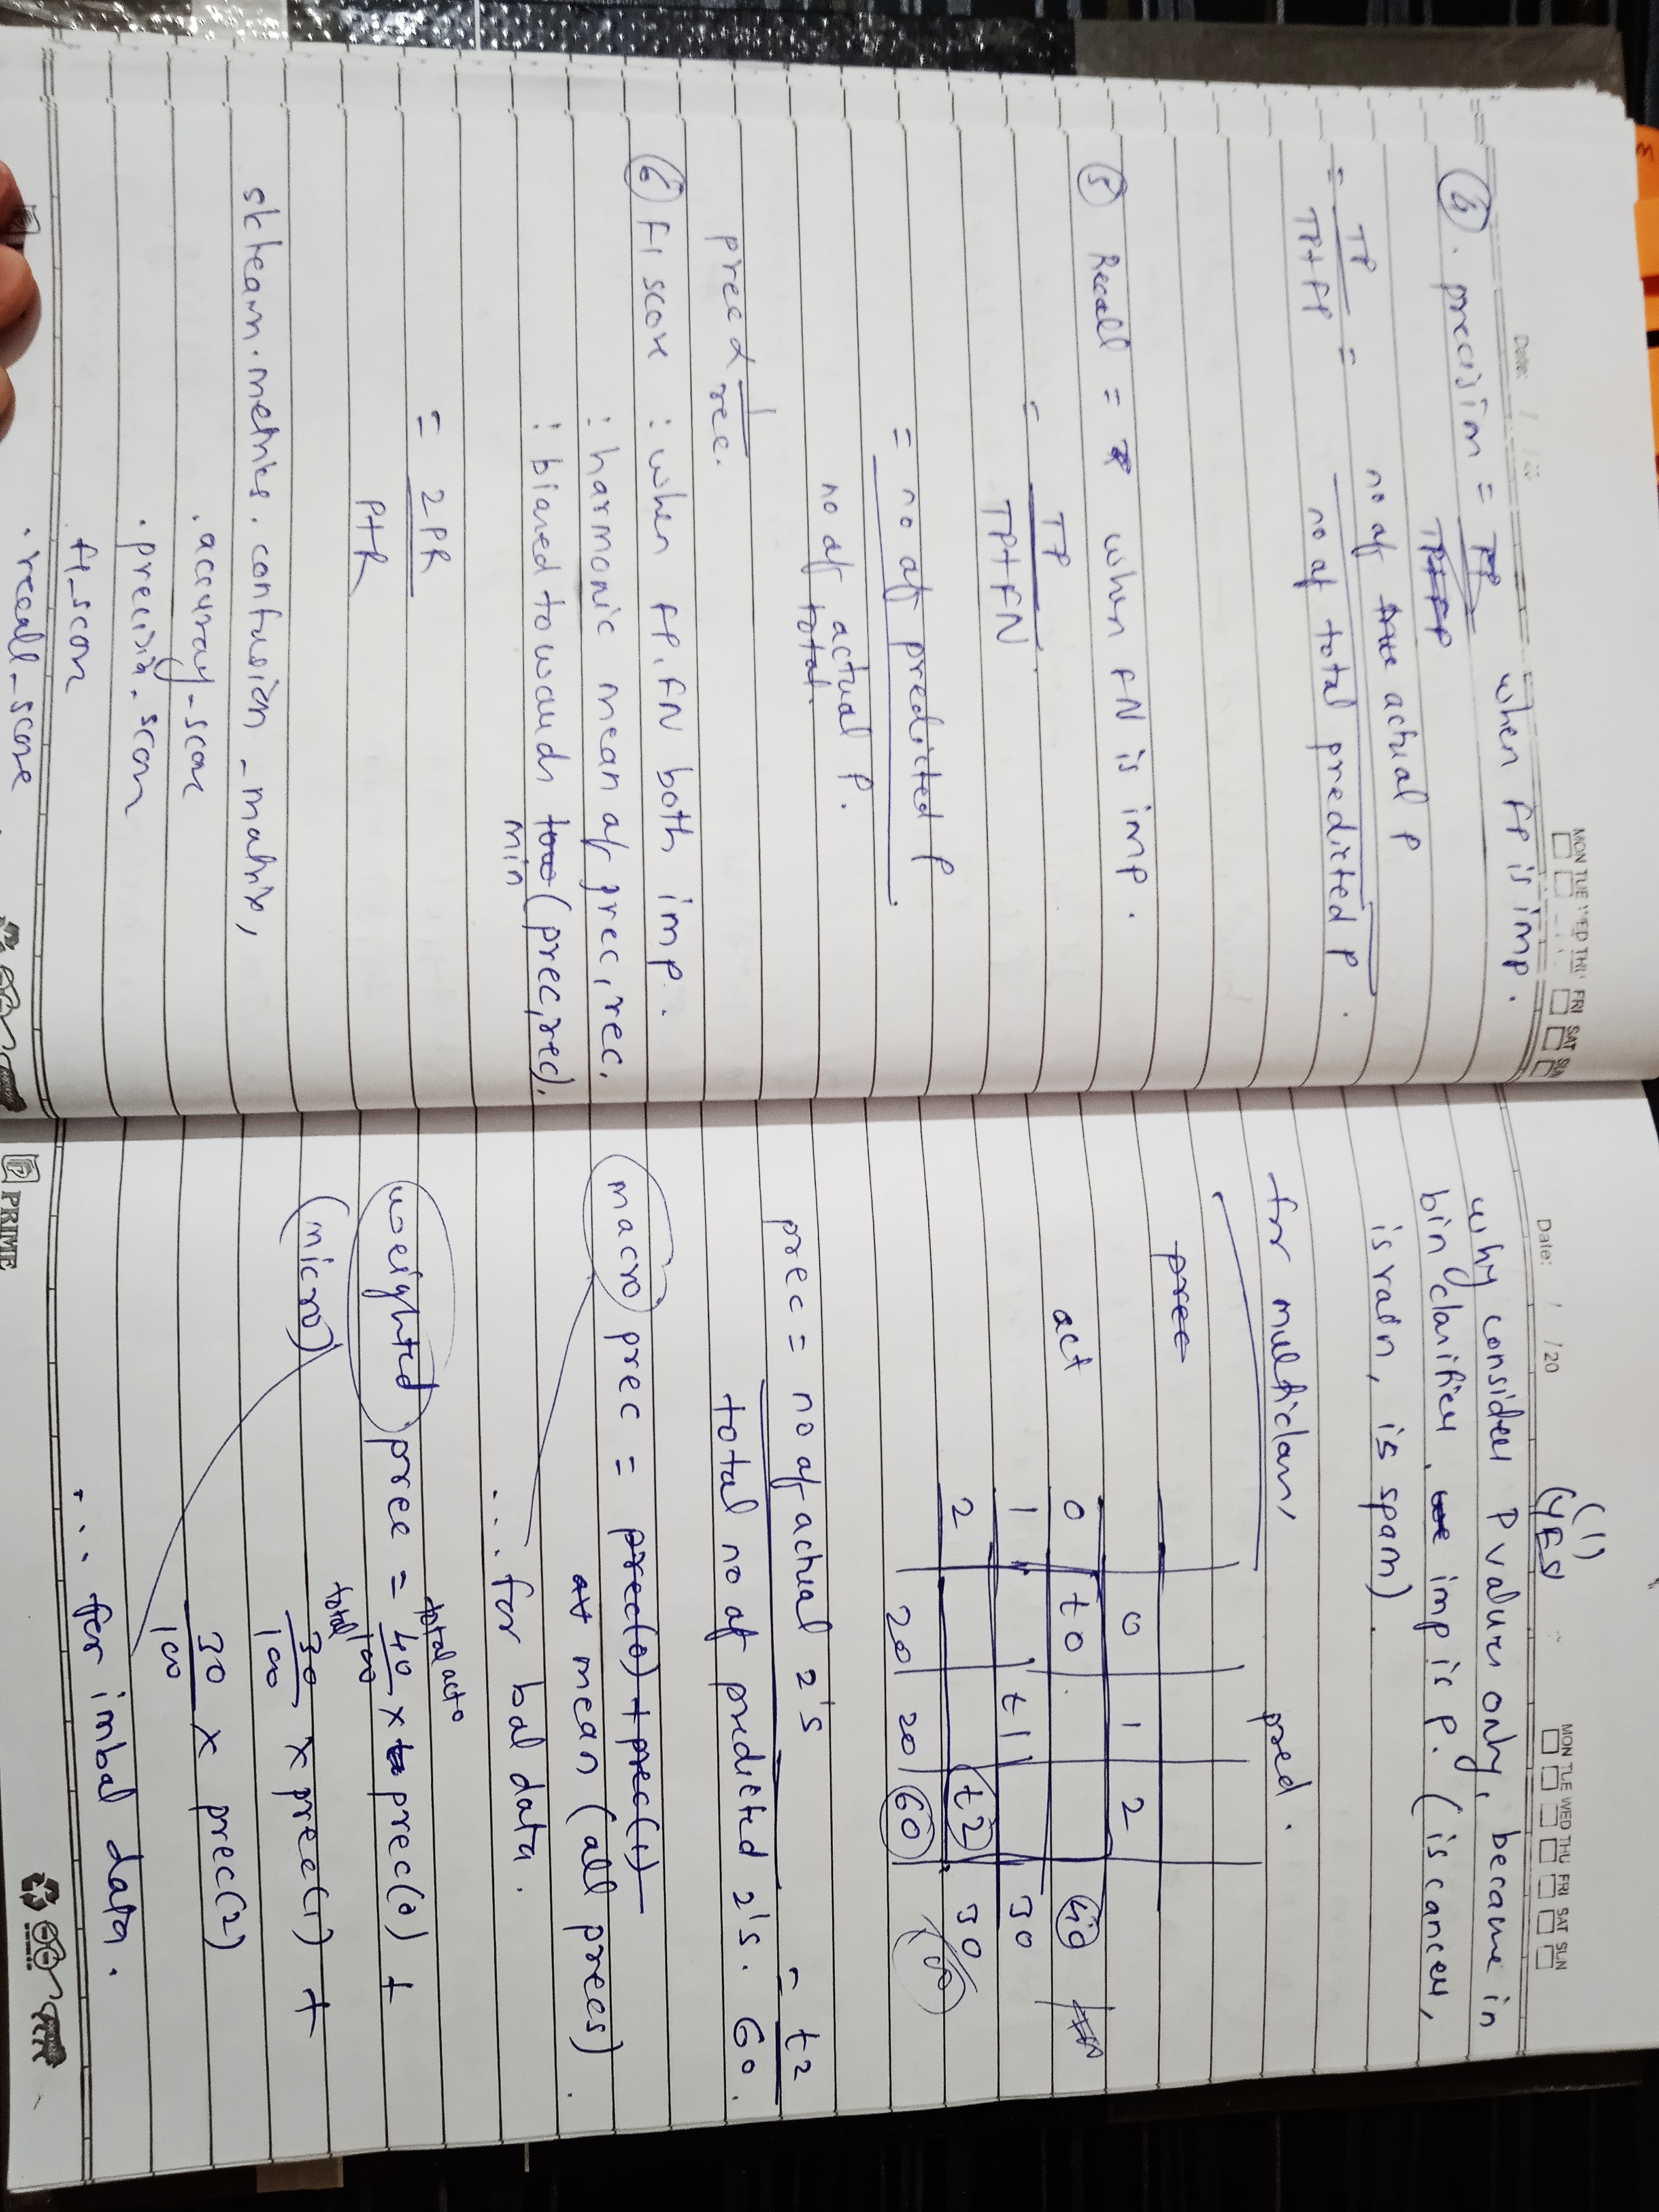 Date: / /20
MON TUE WED THU FRI SAT SUN
④. precision = TP when FP is imp.
TP+FP
no of true actual P
= TP =
TP+FP no of total predicted P.
⑤ Recall = when FN is imp.
= TP
TP+FN
= no of predicted P
no of total actual P.
prec α 1
rec.
⑥ F1 score : when FP, FN both imp.
: harmonic mean of prec, rec.
: biased towards min (prec, rec).
= 2PR
P+R
sklearn.metrics. confusion_matrix,
.accuracy_score
.precision_score
f1_score
.recall_score
Date: / /20
MON TUE WED THU FRI SAT SUN
(1)
(YES)
why consider P values only, because in
bin classifier imp is P. (is cancer,
is rain, is spam)
for multiclass,
pred.
prec
0 1 2
act 0 t0 40
1 t1 30
2 t2 30
20 20 60 100
prec = no of actual 2's = t2
total no of predicted 2's. 60.
macro prec = prec(0) + prec(1)
mean (all precs).
... for bal data.
total act 0
weighted prec = 40 x prec(0) +
total 100
(micro) 30 x prec(1) +
100
30 x prec(2)
100
... for imbal data.
PRIME